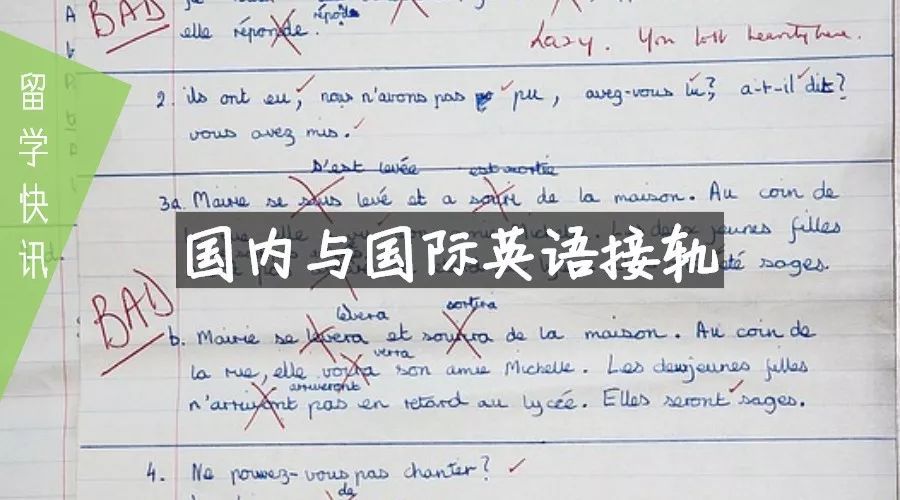 留学快讯
国内与国际英语接轨
A
BAD
répo
elle réponde.
Lazy. You lost here.
2. ils ont eu, nous n'avons pas pu, avez-vous lu?, a-t-il dit?
vous avez mis.
S'est levée est sortie
3a. Marie se levé et a de la maison. Au coin de
filles
été sages.
BAD
lèvera sortira
b. Marie se levera et de la maison. Au coin de
verra
la rue, elle voira son amie Michelle. Les deux jeunes filles
arriveront
n'arrivont pas en retard au lycée. Elles seront sages.
4. Ne pouvez-vous pas chanter?
de